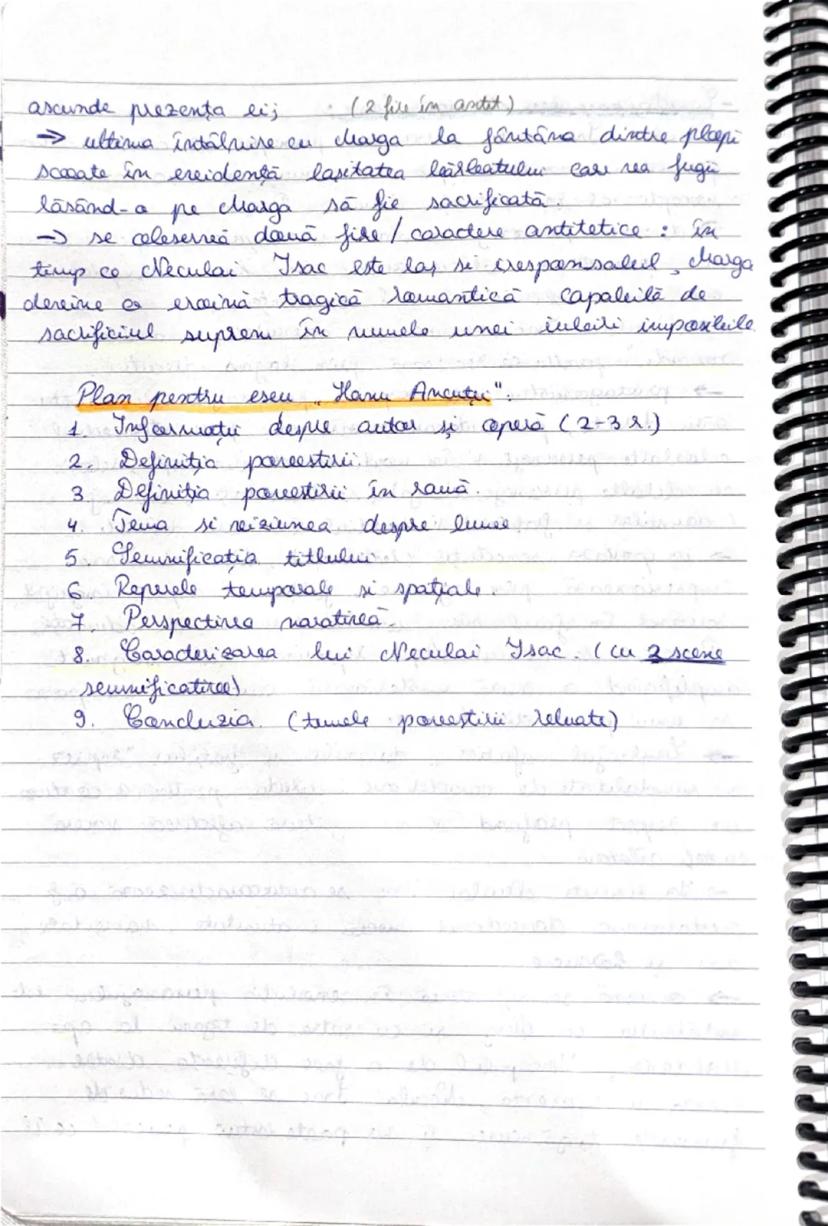 ascunde prezența ei; (2 fire în antit)
→ ultima întâlnire cu Marga la fântâna dintre plopi
scoate în evidență lașitatea bărbatului care va fugi
lăsând-o pe Marga să fie sacrificată
→ se observă două fire / caractere antitetice : în
timp ce Neculai Isac este laș si iresponsabil, Marga
devine o eroină tragică romantică capabilă de
sacrificiul suprem în numele unei iubiri imposibile
Plan pentru eseu „Hanu Ancuței".
1. Informații despre autor și operă (2-3 r.)
2. Definiția povestirii
3. Definiția povestirii în ramă
4. Tema si viziunea despre lume
5. Semnificația titlului
6. Reperele temporale si spațiale.
7. Perspectiva narativă
8. Caracterizarea lui Neculai Isac. (cu 2 scene
semnificative)
9. Concluzia. (temele povestirii reluate)